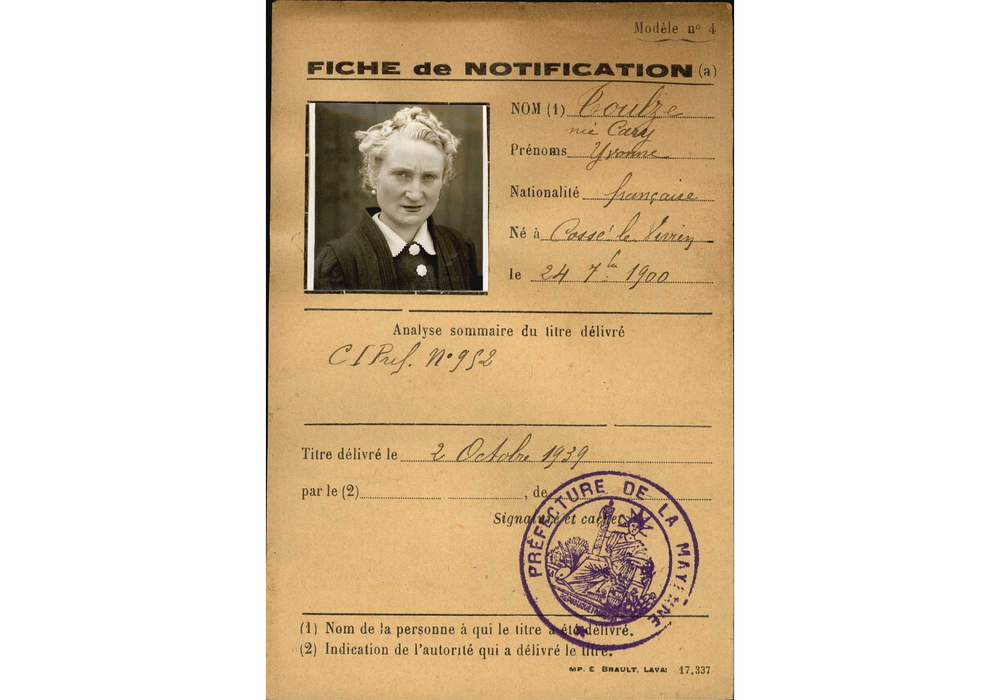 Modèle nº 4
FICHE de NOTIFICATION (a)
NOM (1) Toulze
née Cary
Prénoms Yvonne
Nationalité française
Né à Cossé le Vivien
le 24 7bre 1900
Analyse sommaire du titre délivré
C I Pref. Nº 952
Titre délivré le 2 Octobre 1939
par le (2) , de
Signature et cachet
PRÉFECTURE DE LA MAYENNE
(1) Nom de la personne à qui le titre a été délivré.
(2) Indication de l'autorité qui a délivré le titre.
MP. E BRAULT, LAVAL 17,337